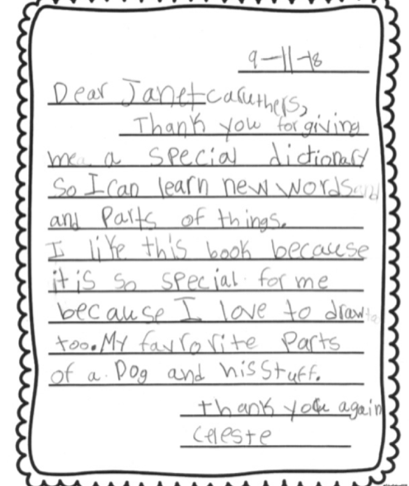 9-11-18
Dear Janet caruthers,
Thank you for giving
me a special dictionary
So I can learn new words
and Parts of things.
I like this book because
it is so special for me
because I love to draw
too. My favrorite Parts
of a Dog and his Stuff.
thank you again
Celeste